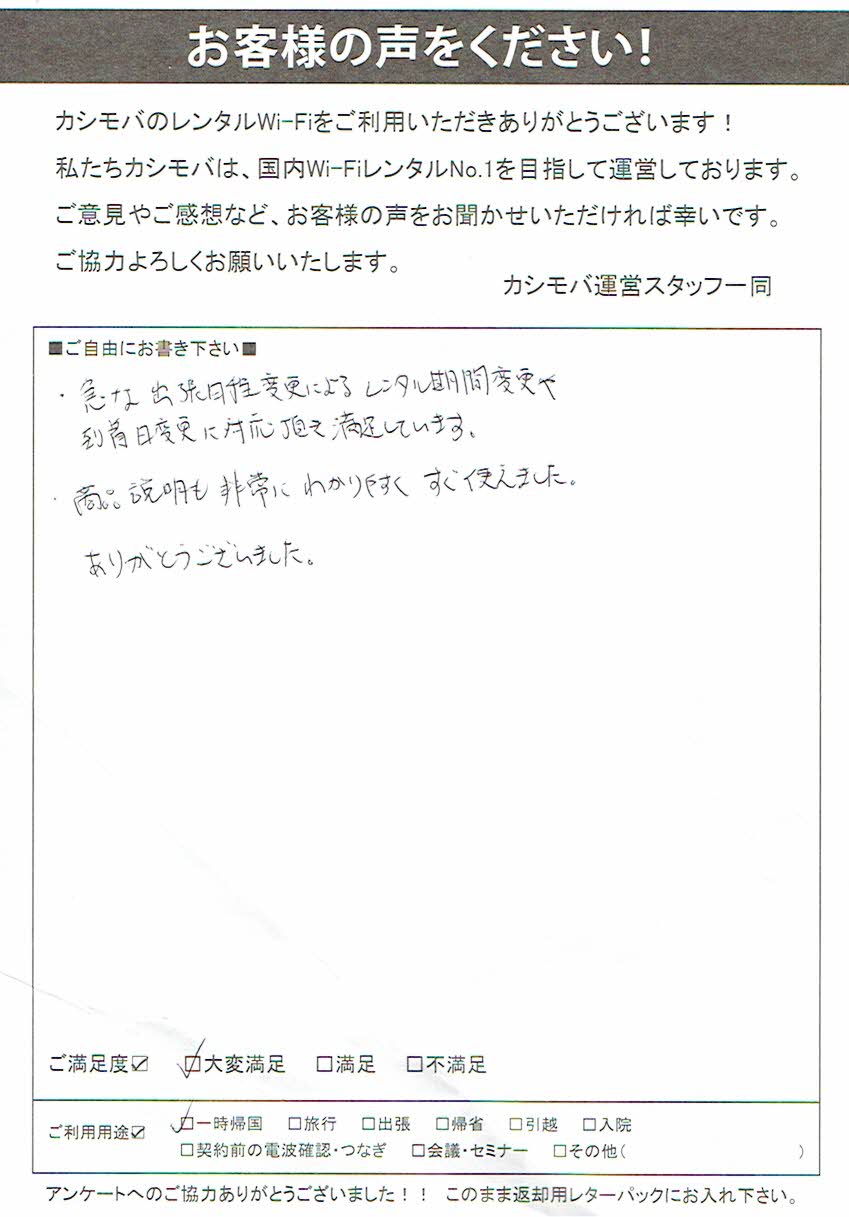 お客様の声をください!
カシモバのレンタルWi-Fiをご利用いただきありがとうございます！
私たちカシモバは、国内Wi-FiレンタルNo.1を目指して運営しております。
ご意見やご感想など、お客様の声をお聞かせいただければ幸いです。
ご協力よろしくお願いいたします。
カシモバ運営スタッフ一同
■ご自由にお書き下さい■
・急な出張日程変更によるレンタル期間変更や
到着日変更に対応頂き満足しています。
・商品説明も非常にわかりやすくすぐ使えました。
ありがとうございました。
ご満足度☑ ☑大変満足 □満足 □不満足
ご利用用途☑ ☑一時帰国 □旅行 □出張 □帰省 □引越 □入院
□契約前の電波確認・つなぎ □会議・セミナー □その他( )
アンケートへのご協力ありがとうございました！！ このまま返却用レターパックにお入れ下さい。